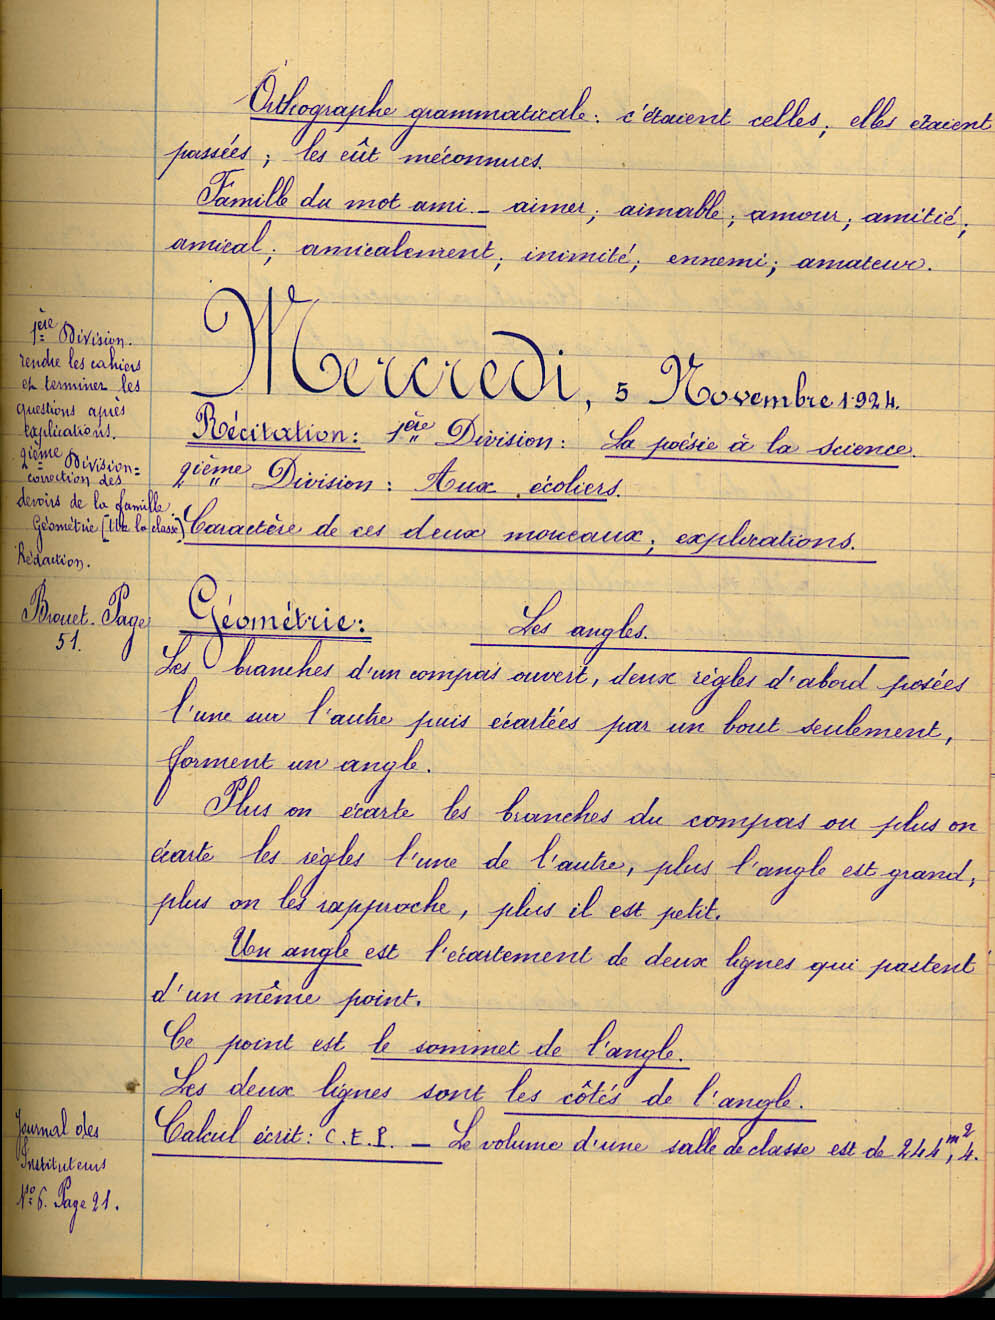 Orthographe grammaticale : c'étaient celles ; elles étaient
passées ; les eût méconnues.
Famille du mot ami _ aimer ; aimable ; amour ; amitié ;
amical ; amicalement ; inimité ; ennemi ; amateur.
Mercredi, 5 Novembre 1924.
1ère Division.
rendre les cahiers
et terminer les
questions après
explications.
2ième Division =
correction des
devoirs de la famille
Géométrie (tte la classe)
Rédaction.
Récitation : 1ère Division : La poésie à la science.
2ième Division : Aux écoliers.
Caractère de ces deux morceaux ; explications.
Brouet. Page
51.
Géométrie : Les angles.
Les branches d'un compas ouvert, deux règles d'abord posées
l'une sur l'autre puis écartées par un bout seulement,
forment un angle.
Plus on écarte les branches du compas ou plus on
écarte les règles l'une de l'autre, plus l'angle est grand,
plus on les rapproche, plus il est petit.
Un angle est l'écartement de deux lignes qui partent
d'un même point.
Ce point est le sommet de l'angle.
Les deux lignes sont les côtés de l'angle.
Journal des
Instituteurs
N° 6. Page 21.
Calcul écrit : C.E.P. _ Le volume d'une salle de classe est de 244m2,4.